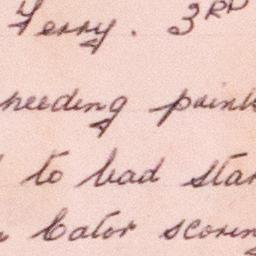 Terry. 3RD
needing paint
to bad star
Cator scoring